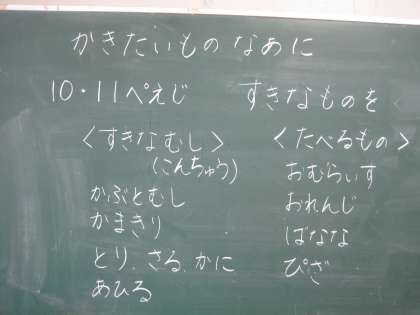 かきたいものなあに
10・11ぺえじ　すきなものを
＜すきなむし＞
(こんちゅう)
かぶとむし
かまきり
とり、さる、かに
あひる
＜たべるもの＞
おむらいす
おれんじ
ばなな
ぴざ